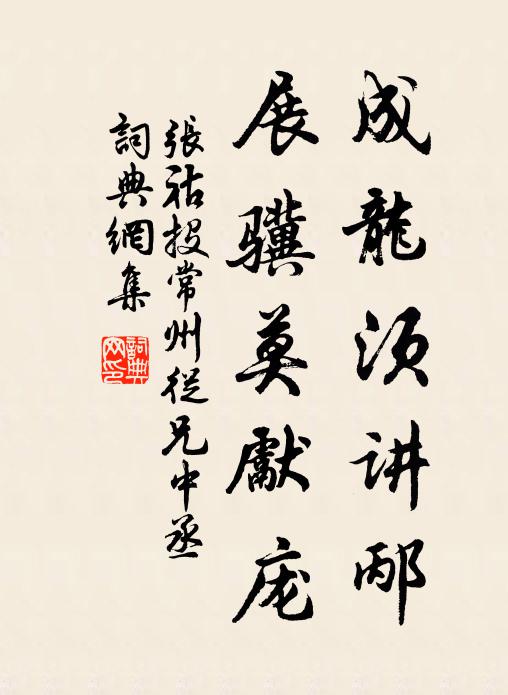 成龍须讲邴
展骥莫獻庞
張祜投常州從兄中丞
詞典網集
詞典網印